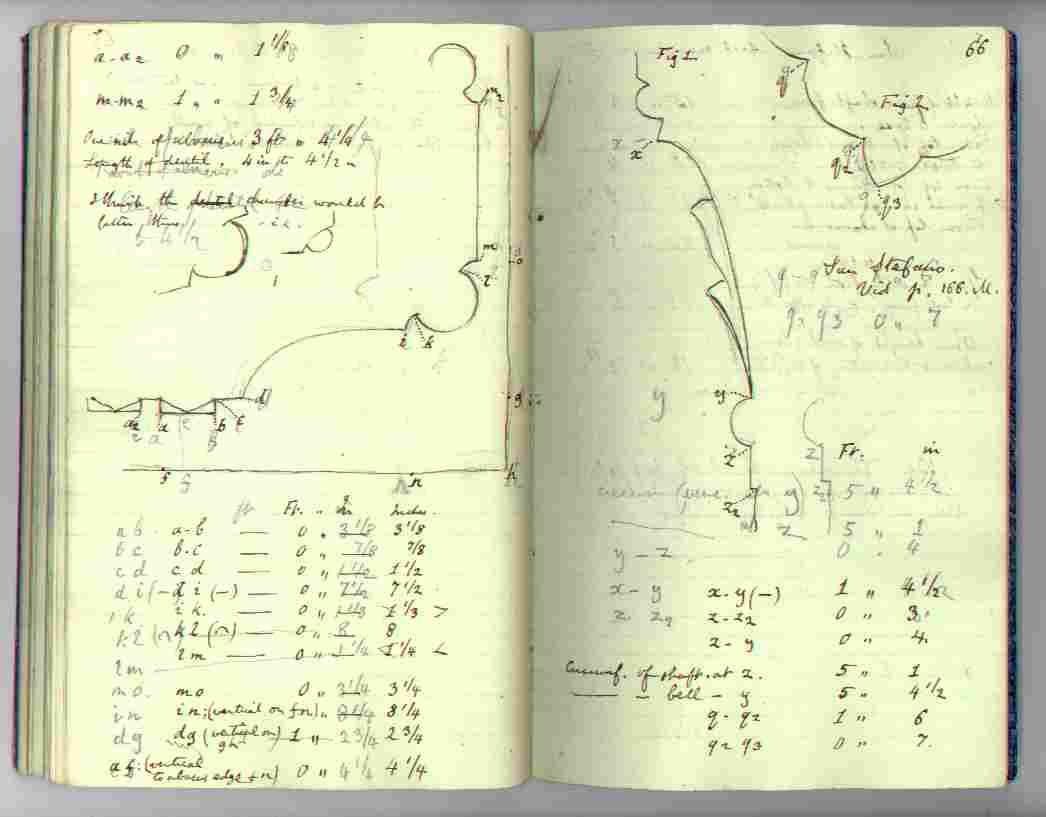 a-a2 0 " 1 1/8
m-m2 1 " " 1 3/4
One side of abacus is 3 ft " 4 1/4
Length of dentil. 4 in to 4 1/2 "
I think the dentil would be
better, thus.
m2
m
o
l
i k
d
g
a2 a b c
f n h
Ft. " in Inches.
ab a-b — 0 " 3 1/8 3 1/8
bc b.c — 0 " 7/8 7/8
cd c d — 0 " 1 1/2 1 1/2
di (- d i (-) — 0 " 7 1/2 7 1/2
ik. i k. — 0 " 1 1/3 1 1/3 >
kl k l — 0 " 8 8
lm l m — 0 " 1 1/4 1 1/4 <
mo. mo 0 " 3 1/4 3 1/4
in in: (vertical on fn) " 3 1/4 3 1/4
dg dg (vertical on gh) 1 " 2 3/4 2 3/4
af: (vertical
to abacus edge fn) 0 " 4 1/4 4 1/4
66
Fig 1
Fig 2
x
q
q2
q3
San Stefano.
Vid p. 166. M.
q2 q3 0 " 7
y
y
z
z2
z
z2
Ft. in
y) 5 " 4 1/2
z 5 " 1
y - z 0 " 4
x - y x-y (-) 1 " 4 1/2
z. z2 z-z2 0 " 3
z-y 0 " 4
Circumf. of shaft. at z. 5 " 1
— — bell - y 5 " 4 1/2
q-q2 1 " 6
q2 q3 0 " 7.